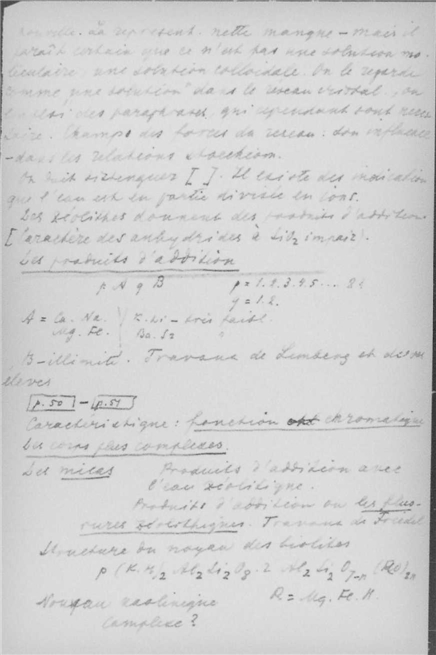 nouvelle. La represent. nette manque – mais il
paraît certain que ce n'est pas une solution mo-
liculaire, une solution colloidale. On le regarde
comme "une solution" dans le reseau cristal, on
des paraphrases, qui cependant sont neces-
saire. Champs des forces du reseau: son influence
– dans les relations stoechiom.
On doit distenguer [ ]. Il existe des indication
que l'eau est en partie divisée en ions.
Les zeolithes donnent des produits d'addition
[Caractère des anhydrides à SiO2 impair].
Les produits d'addition
p A q B p = 1.2.3.4.5...
q = 1.2.
A = Ca. Na. K. Li – très faibl.
Mg. Fe. Ba. Sr "
B – illimité. Travaux de Lemberg et de
eleves
p. 50 – p. 51
Caracteristique: fonction chromatique
Les corps plus complexes.
Les micas Produits d'addition avec
l'eau zéolitique.
Produits d'addition ou les plus-
zéolithiques. Travaux de Friedel
Structure du noyau des biotites
p (K.H)2 Al2 Si2 O8. 2 Al2 Si2 O7-n (RO)2n
Noyau kaolinique R = Mg. Fe. K.
Complexe?